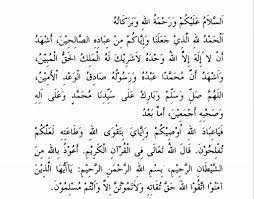 اَلسَّلاَمُ عَلَيْكُمْ وَرَحْمَةُ اللهِ وَبَرَكَاتُهُ
اَلْحَمْدُ للهِ الَّذِيْ جَعَلَنَا وَإِيَّاكُمْ مِنْ عِبَادِهِ الصَّالِحِيْنَ، أَشْهَدُ
أَنْ لاَ إِلَهَ إِلاَّ اللهُ وَحْدَهُ لاَشَرِيْكَ لَهُ الْمَلِكُ الْحَقُّ الْمُبِيْنُ،
وَأَشْهَدُ أَنَّ مُحَمَّدًا عَبْدُهُ وَرَسُوْلُهُ صَادِقُ الْوَعْدِ الْأَمِيْنُ،
اللَّهُمَّ صَلِّ وَسَلِّمْ وَبَارِكْ عَلَى سَيِّدِنَا مُحَمَّدٍ وَعَلَى آلِهِ
وَصَحْبِهِ أَجْمَعِيْنَ، أَمَّا بَعْدُ
فَيَاعِبَادَ اللهِ أُوْصِيْكُمْ وَإِيَّايَ بِتَقْوَى اللهِ وَطَاعَتِهِ لَعَلَّكُمْ
تُفْلِحُوْنَ. قَالَ اللهُ تَعَالَى فِي الْقُرْآنِ الْكَرِيْمِ. أَعُوْذُ بِاللهِ مِنَ
الشَّيْطَانِ الرَّجِيْمِ، بِسْمِ اللهِ الرَّحْمَنِ الرَّحِيْمِ: يَاأَيُّهَا الَّذِيْنَ
آمَنُوا اتَّقُوا اللهَ حَقَّ تُقَاتِهِ وَلاَتَمُوْتُنَّ إِلاَّ وَأَنْتُمْ مُسْلِمُوْنَ.